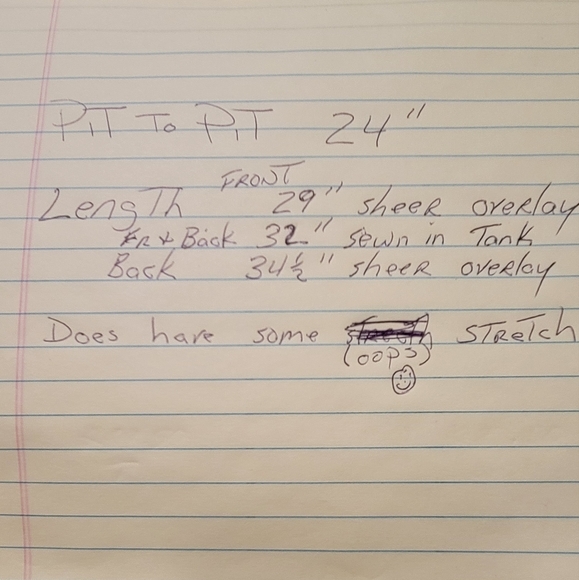 PIT TO PIT 24"
FRONT
LengTh 29" sheer overlay
FR + Back 32" sewn in Tank
Back 34½" sheer overlay
Does have some STReTch
(oops)